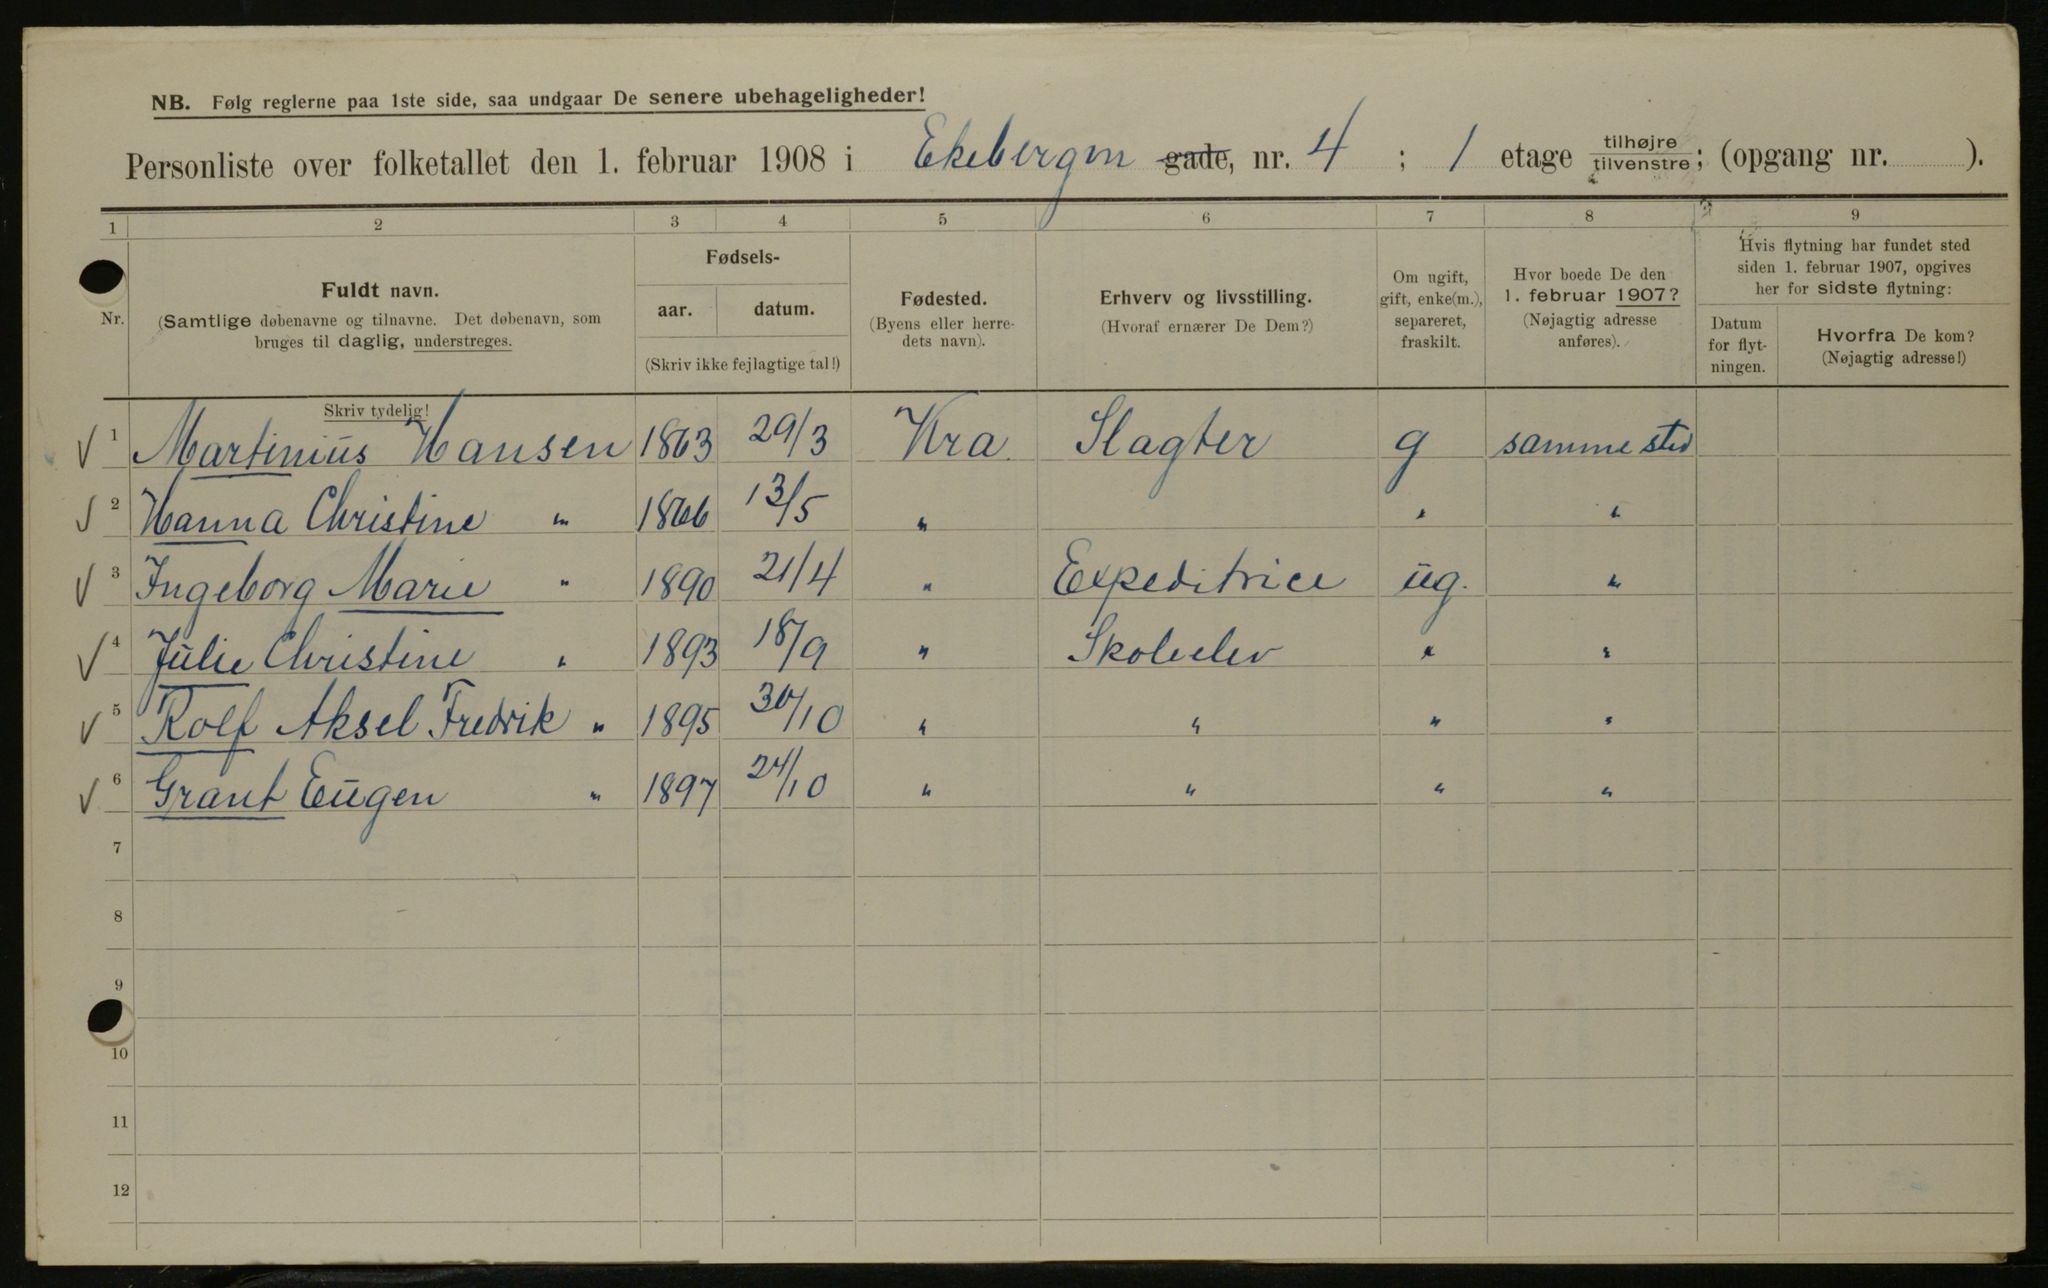 NB. Følg reglerne paa 1ste side, saa undgaar De senere ubehageligheder!
Personliste over folketallet den 1. februar 1908 i Ekebergvn gade, nr. 4 ; 1 etage tilhøjre/tilvenstre; (opgang nr. ).
1 2 3 4 5 6 7 8 9
Nr.
Fuldt navn.
(Samtlige døbenavne og tilnavne. Det døbenavn, som
bruges til daglig, understreges.
Skriv tydelig!
Fødsels-
aar. datum.
(Skriv ikke fejlagtige tal!)
Fødested.
(Byens eller herre-
dets navn).
Erhverv og livsstilling.
(Hvoraf ernærer De Dem?)
Om ugift,
gift, enke(m.),
separeret,
fraskilt.
Hvor boede De den
1. februar 1907?
(Nøjagtig adresse
anføres).
Hvis flytning har fundet sted
siden 1. februar 1907, opgives
her for sidste flytning:
Datum
for flyt-
ningen.
Hvorfra De kom?
(Nøjagtig adresse!)
1 Martinius Hansen 1863 29/3 Kra. Slagter g samme sted
2 Hanna Christine " 1866 13/5 " " "
3 Ingeborg Marie " 1890 21/4 " Expeditrice ug. "
4 Julie Christine " 1893 18/9 " Skoleelev " "
5 Rolf Aksel Fredrik " 1895 30/10 " " " "
6 Grant Eugen " 1897 24/10 " " " "
7
8
9
10
11
12